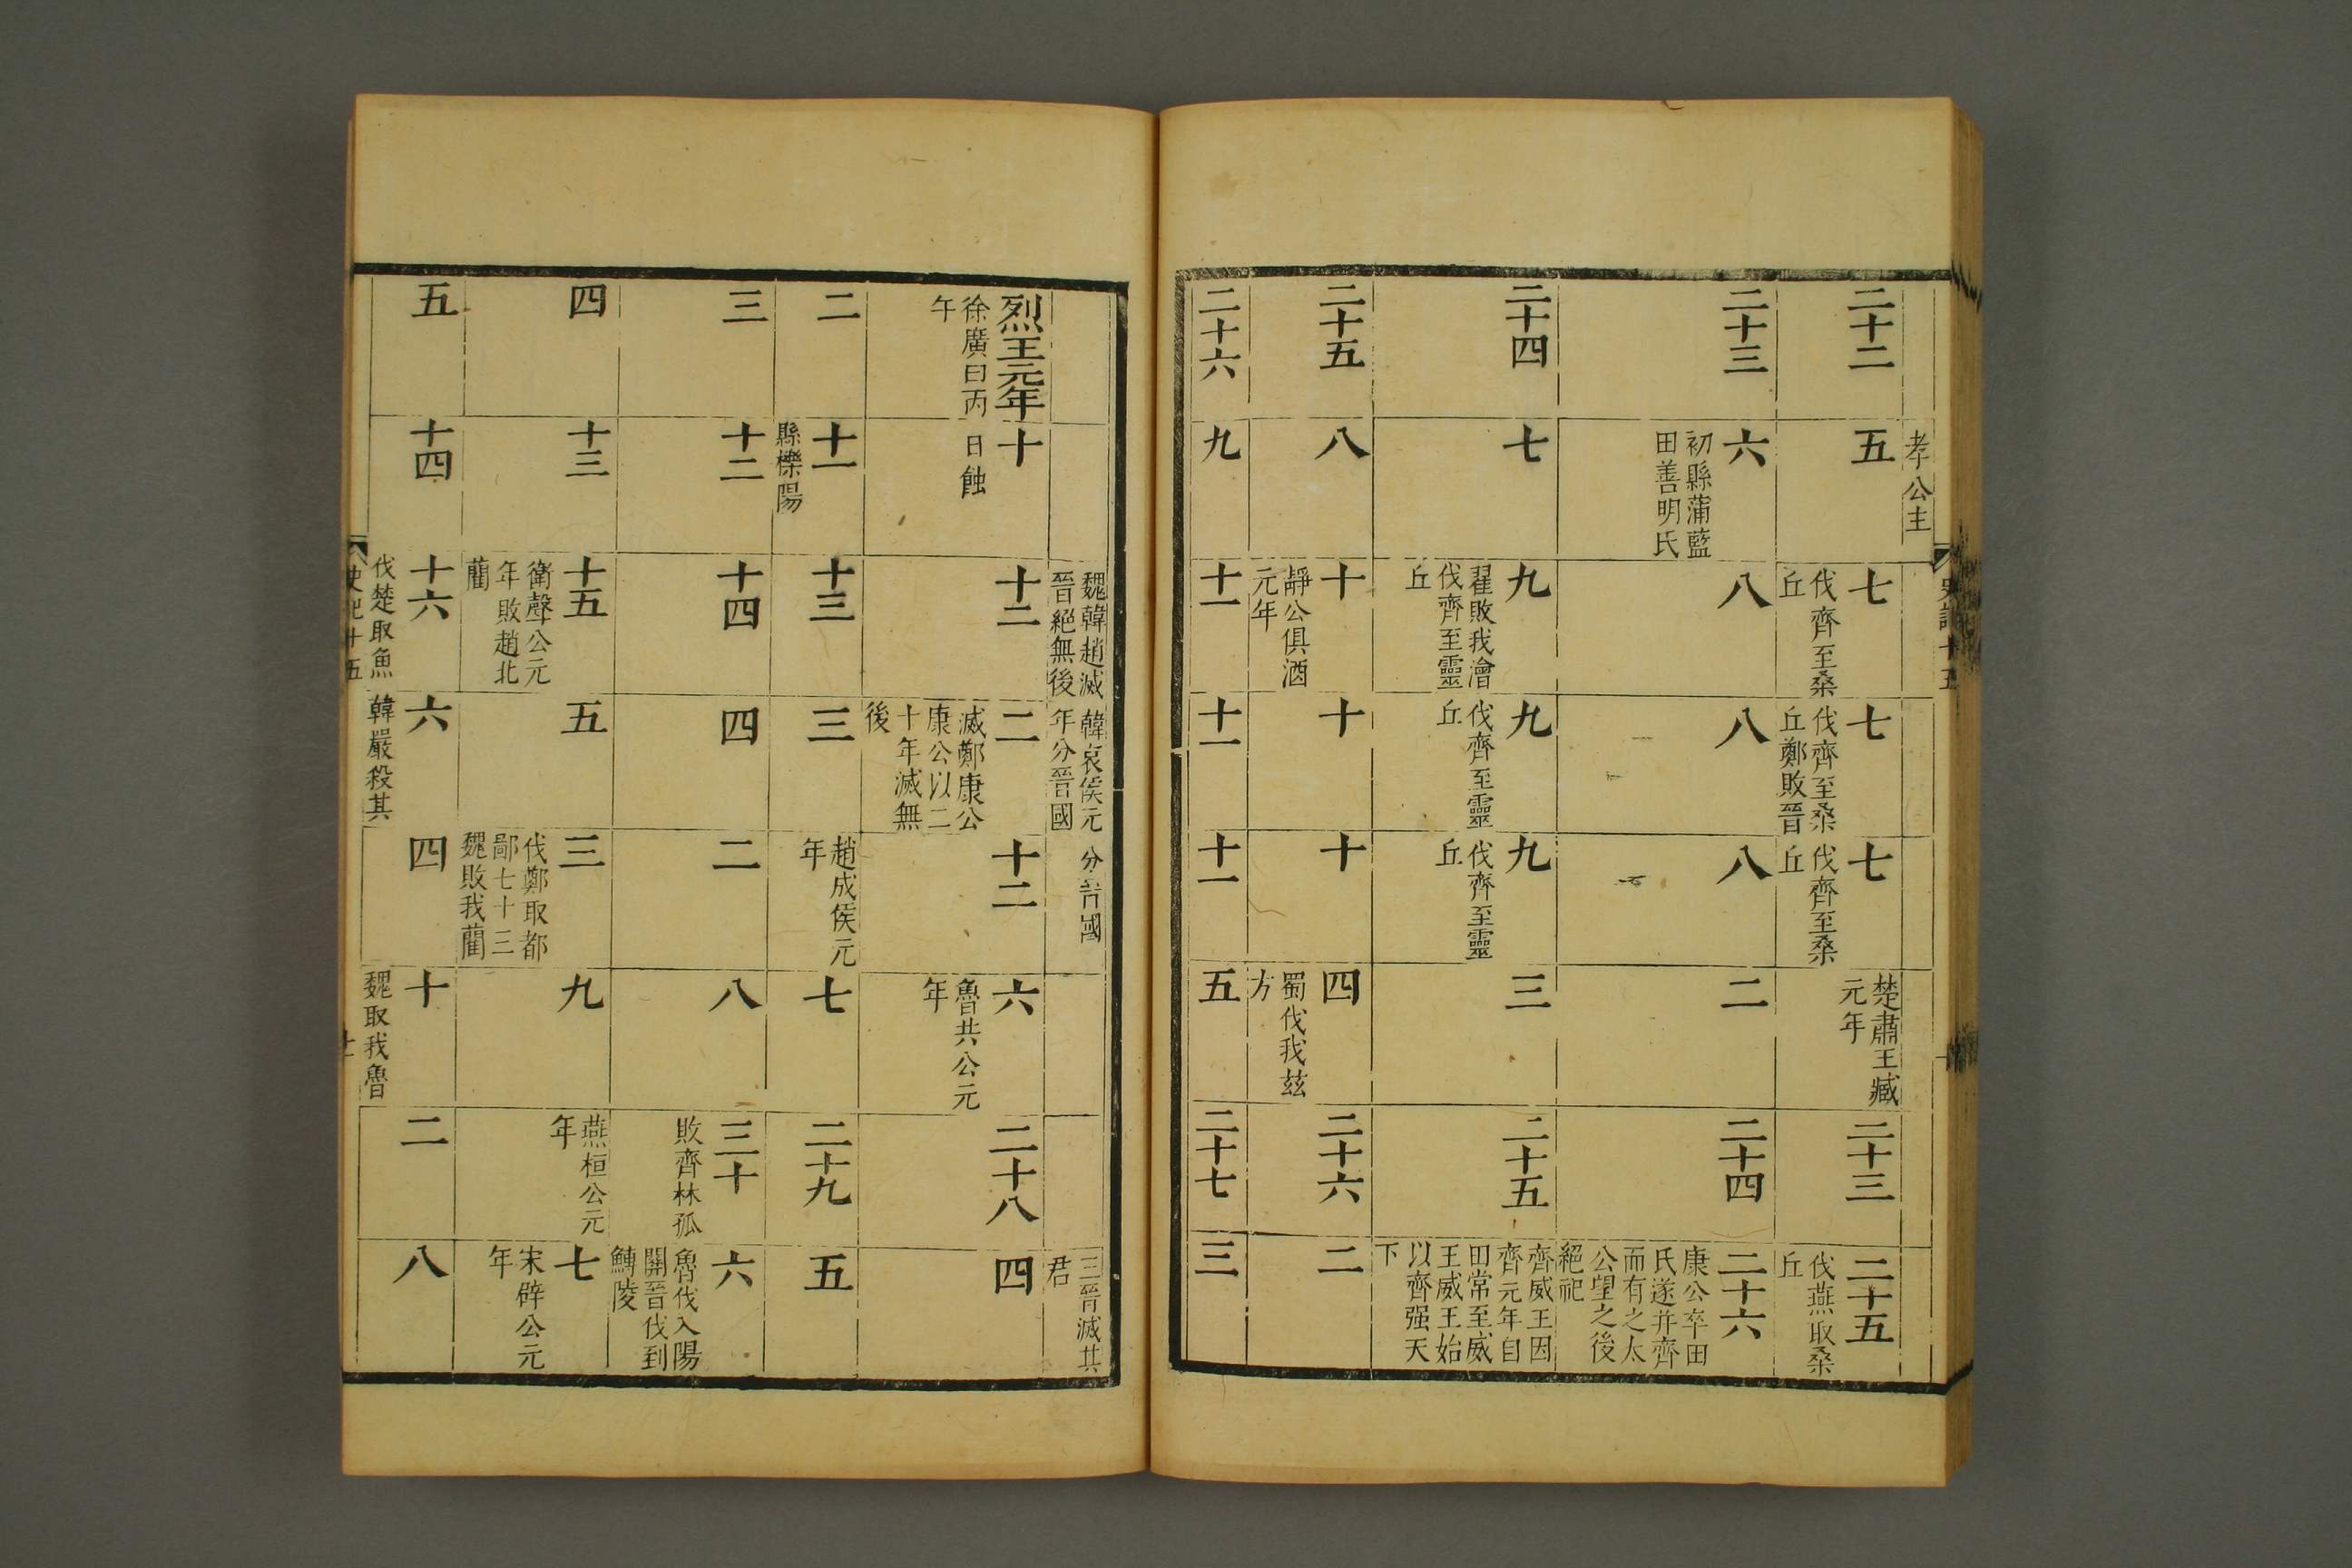 孝公主
二十二
五
七
伐齊至桑
丘
七
伐齊至桑
丘鄭敗晉
七
伐齊至桑
丘
楚肅王臧
元年
二十三
二十五
伐燕取桑
丘
二十三
六
初縣蒲藍
田善明氏
八
八
八
二
二十四
二十六
康公卒田
氏遂并齊
而有之太
公望之後
絕祀
二十四
七
九
翟敗我澮
伐齊至靈
丘
九
伐齊至靈
丘
九
伐齊至靈
丘
三
二十五
齊威王因
齊元年自
田常至威
王威王始
以齊强天
下
二十五
八
十
靜公俱酒
元年
十
十
四
蜀伐我兹
方
二十六
二
二十六
九
十一
十一
十一
五
二十七
三
魏韓趙滅
晉絕無後
韓哀侯元
年分晉國
分晉國
三晉滅其
君
烈王元年
徐廣曰丙
午
十
日蝕
十二
二
滅鄭康公
康公以二
十年滅無
後
十二
六
魯共公元
年
二十八
四
二
十一
縣櫟陽
十三
三
趙成侯元
年
七
二十九
五
三
十二
十四
四
二
八
三十
敗齊林孤
六
魯伐入陽
關晉伐到
鱄陵
四
十三
十五
衛聲公元
年敗趙北
藺
五
三
伐鄭取都
鄙七十三
魏敗我藺
九
燕桓公元
年
七
宋辟公元
年
五
十四
十六
伐楚取魚
六
韓嚴殺其
四
十
魏取我魯
二
八
史記十五